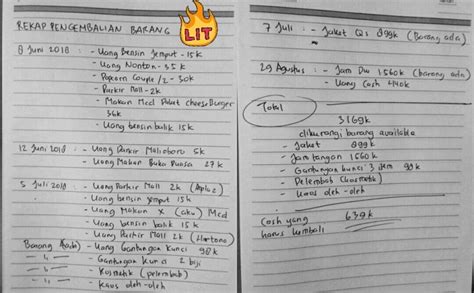 REKAP PENGEMBALIAN BARANG
LIT
8 Juni 2018 : - Uang bensin jemput - 15k
- Uang Nonton - 35k
- Popcorn Couple /2 - 30k
- Parkir Mall - 2k
- Makan Mcd Paket cheese Burger
36k
- Uang bensin balik 15k
12 Juni 2018 : - Uang Parkir Malioboro 5k
- Uang Makan Buka Puasa 27k
5 Juli 2018 : - Uang Parkir Mall 2k
- Uang bensin jemput 15k
- Uang Makan X (aku) Mcd
- Uang bensin balik 15k
- Uang Parkir Mall 2k (Hartono)
Barang - Uang Gantungan Kunci 98k
- Gantungan Kunci 2 biji
- Kosmetik (pelembab)
- Kaos oleh-oleh
7 Juli : - Jaket 899k (Barang ada)
29 Agustus : - Jam DW 1560k (barang ada)
- Uang Cash 440k
Total
3169k
dikurangi barang available
- Jaket 899k
- Jam tangan 1560k
- Gantungan kunci 98k
- Pelembab (kosmetik)
- Kaos oleh-oleh
Cash yang 639k
harus kembali